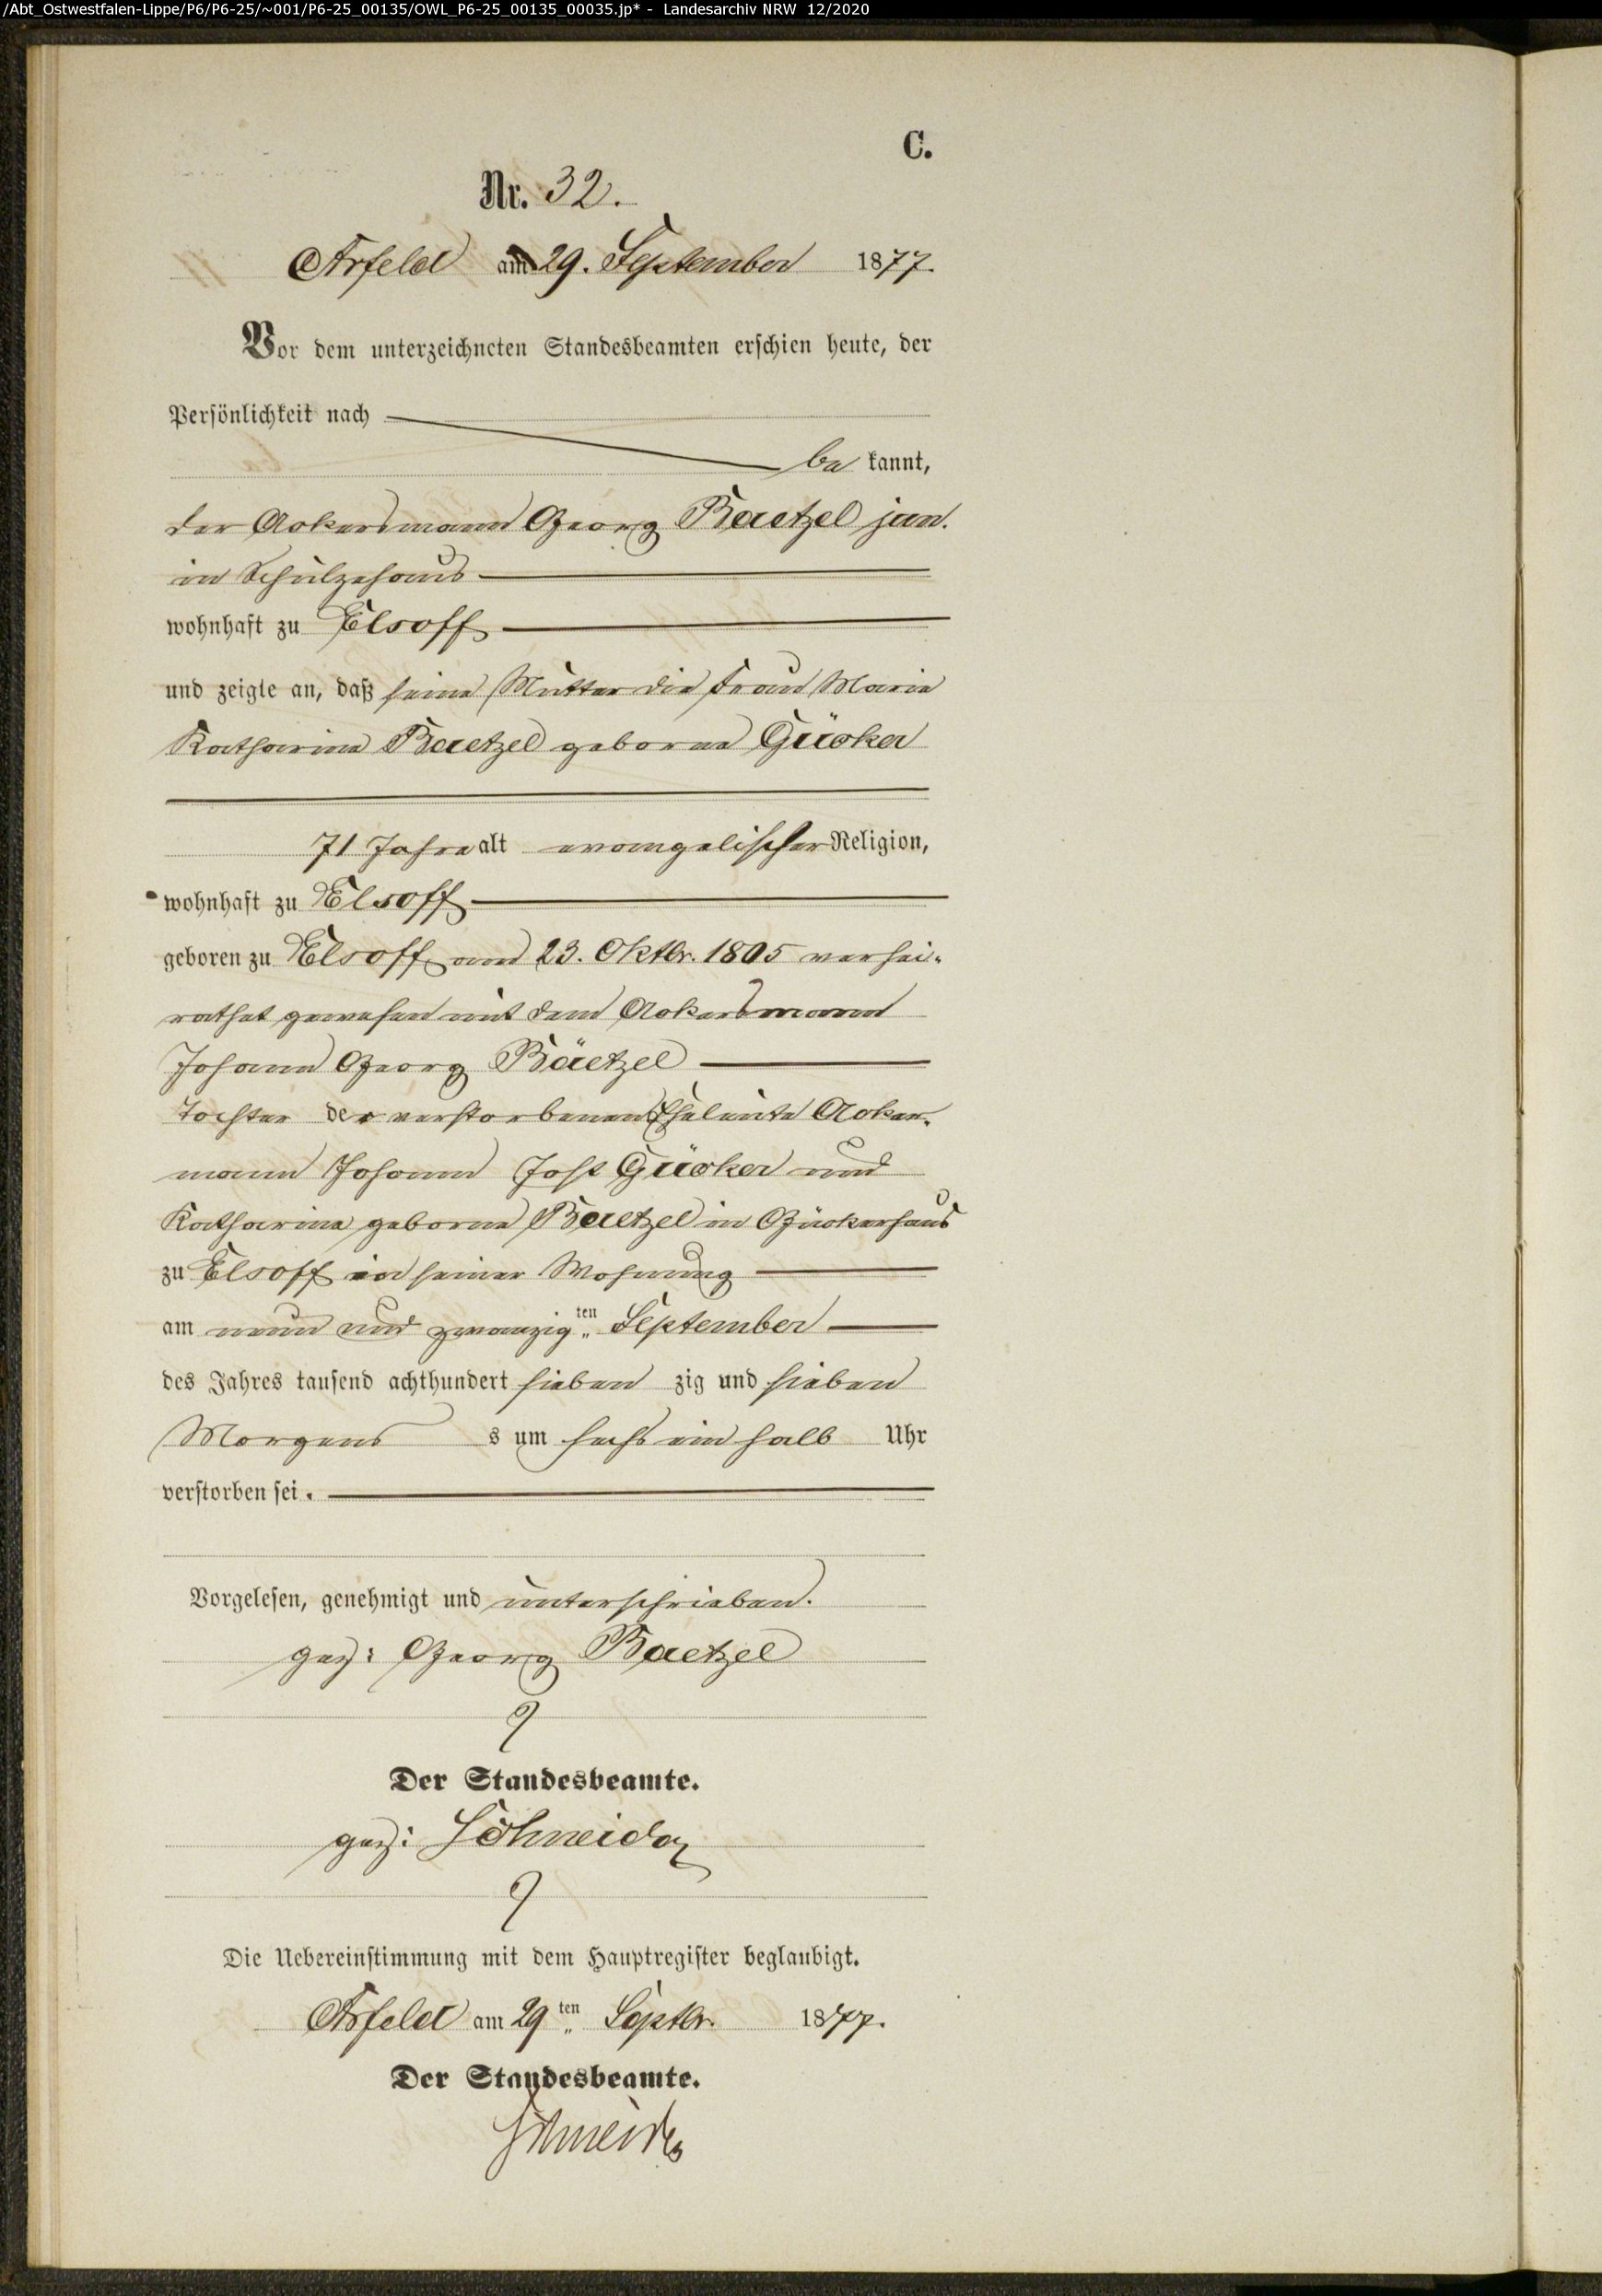 /Abt_Ostwestfalen-Lippe/P6/P6-25/~001/P6-25_00135/OWL_P6-25_00135_00035.jp* - Landesarchiv NRW 12/2020
C.
Nr. 32.
Arfeld am 29. September 1877.
Vor dem unterzeichneten Standesbeamten erschien heute, der
Persönlichkeit nach
be kannt,
der Ackersmann Georg Baetzel jun.
in Schulzehaus
wohnhaft zu Elsoff
und zeigte an, daß seine Mutter die Frau Marie
Katharine Baetzel geborne Gücker
71 Jahre alt evangelischer Religion,
wohnhaft zu Elsoff
geboren zu Elsoff am 23. Oktbr. 1805 verhei-
rathet gewesen mit dem Ackersmann
Johann Georg Bäetzel
Tochter der verstorbenen Eheleute Acker-
mann Johann Jost Gücker und
Katharine geborne Baetzel in Gückerhaus
zu Elsoff in seiner Wohnung
am neun und zwanzig ten September
des Jahres tausend achthundert sieben zig und sieben
Morgens s um sechs ein halb Uhr
verstorben sei.
Vorgelesen, genehmigt und unterschrieben.
gez: Georg Baetzel
Der Standesbeamte.
gez: Schneider
Die Uebereinstimmung mit dem Hauptregister beglaubigt.
Arfeld am 29 ten Septbr. 1877.
Der Standesbeamte.
Schneider